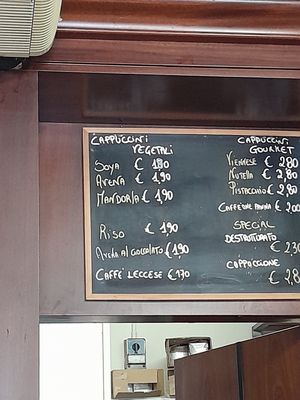 CAPPUCCINI
VEGETALI
SOYA € 1,80
AVENA € 1,90
MANDORLA € 1,90
RISO € 1,90
AVENA AL CIOCCOLATO € 1,90
CAFFE' LECCESE € 1,70
CAPPUCCINI
GOURMET
VIENNESE € 2,80
NUTELLA € 2,80
PISTACCHIO € 2,80
CAFFE' CON PANNA € 2,00
SPECIAL
DESTRUTTURATO
€ 2,30
CAPPACCIONE
€ 2,8